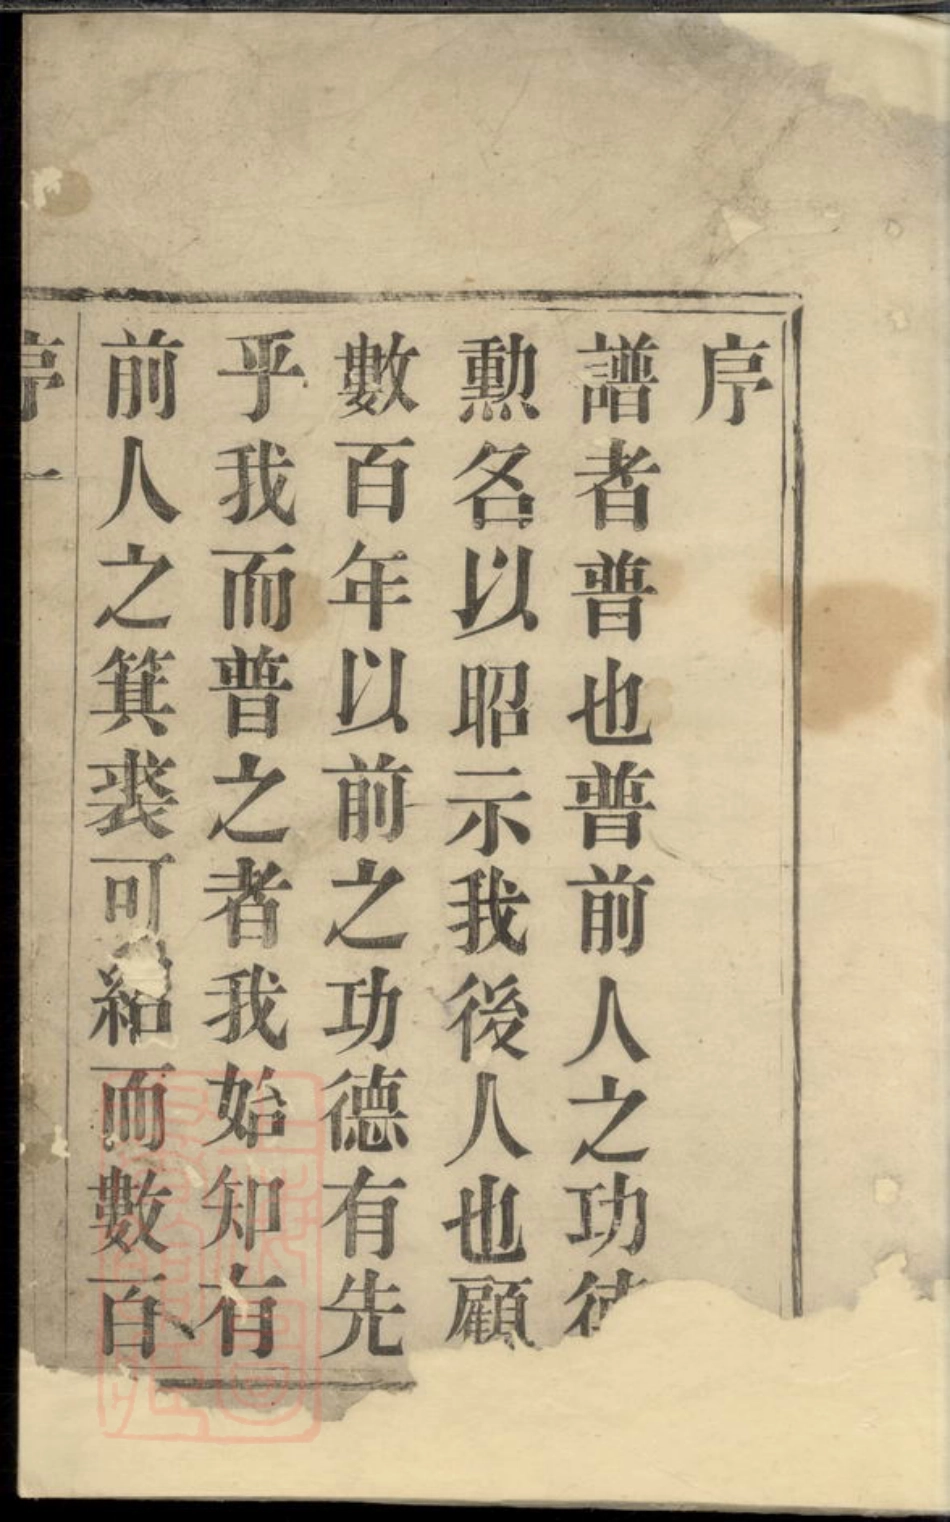 序
譜者普也普前人之功德
勲名以昭示我後人也顧
數百年以前之功德有先
乎我而普之者我始知有
前人之箕裘可紹而數百
序 一